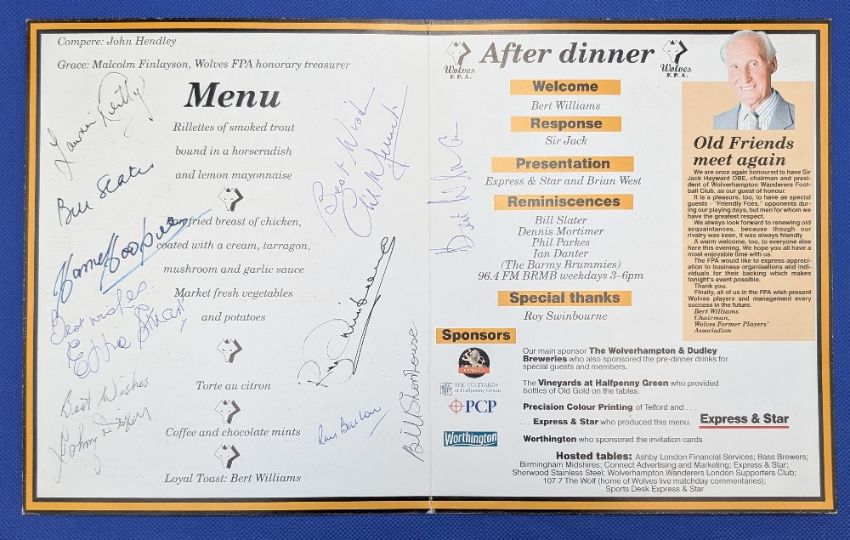 Compere: John Hendley
Grace: Malcolm Finlayson, Wolves FPA honorary treasurer
Menu
Rillettes of smoked trout
bound in a horseradish
and lemon mayonnaise
Panfried breast of chicken,
coated with a cream, tarragon,
mushroom and garlic sauce
Market fresh vegetables
and potatoes
Torte au citron
Coffee and chocolate mints
Loyal Toast: Bert Williams
Bill Slater
Best wishes
Eddie Stuart
Best Wishes
Johnny Dixon
Best Wishes
Roy Swinbourne
Ray Barlow
Bill Shorthouse
Bert Williams
Wolves
F.P.A.
After dinner
Wolves
F.P.A.
Welcome
Bert Williams
Response
Sir Jack
Presentation
Express & Star and Brian West
Reminiscences
Bill Slater
Dennis Mortimer
Phil Parkes
Ian Danter
(The Barmy Brummies)
96.4 FM BRMB weekdays 3–6pm
Special thanks
Roy Swinbourne
Old Friends
meet again
We are once again honoured to have Sir
Jack Hayward OBE, chairman and presi-
dent of Wolverhampton Wanderers Foot-
ball Club, as our guest of honour.
It is a pleasure, too, to have special
guests - "Friendly Foes," opponents dur-
ing our playing days, but men for whom we
have the greatest respect.
We always look forward to renewing old
acquaintances, because though our
rivalry was keen, it was always friendly
A warm welcome, too, to everyone else
here this evening. We hope you all have a
most enjoyable time with us.
The FPA would like to express appreci-
ation to business organisations and indi-
viduals for their backing which makes
tonight's event possible.
Thank you.
Finally, all of us in the FPA wish present
Wolves players and management every
success in the future.
Bert Williams
Chairman,
Wolves Former Players'
Association
Sponsors
Our main sponsor The Wolverhampton & Dudley
Breweries who also sponsored the pre-dinner drinks for
special guests and members.
THE VINEYARDS
at Halfpenny Green
The Vineyards at Halfpenny Green who provided
bottles of Old Gold on the tables.
PCP
Precision Colour Printing of Telford and . . .
. . . Express & Star who produced this menu.
Express & Star
Worthington
Worthington who sponsored the invitation cards
Hosted tables: Ashby London Financial Services; Bass Brewers;
Birmingham Midshires; Connect Advertising and Marketing; Express & Star;
Sherwood Stainless Steel; Wolverhampton Wanderers London Supporters Club;
107.7 The Wolf (home of Wolves live matchday commentaries);
Sports Desk Express & Star